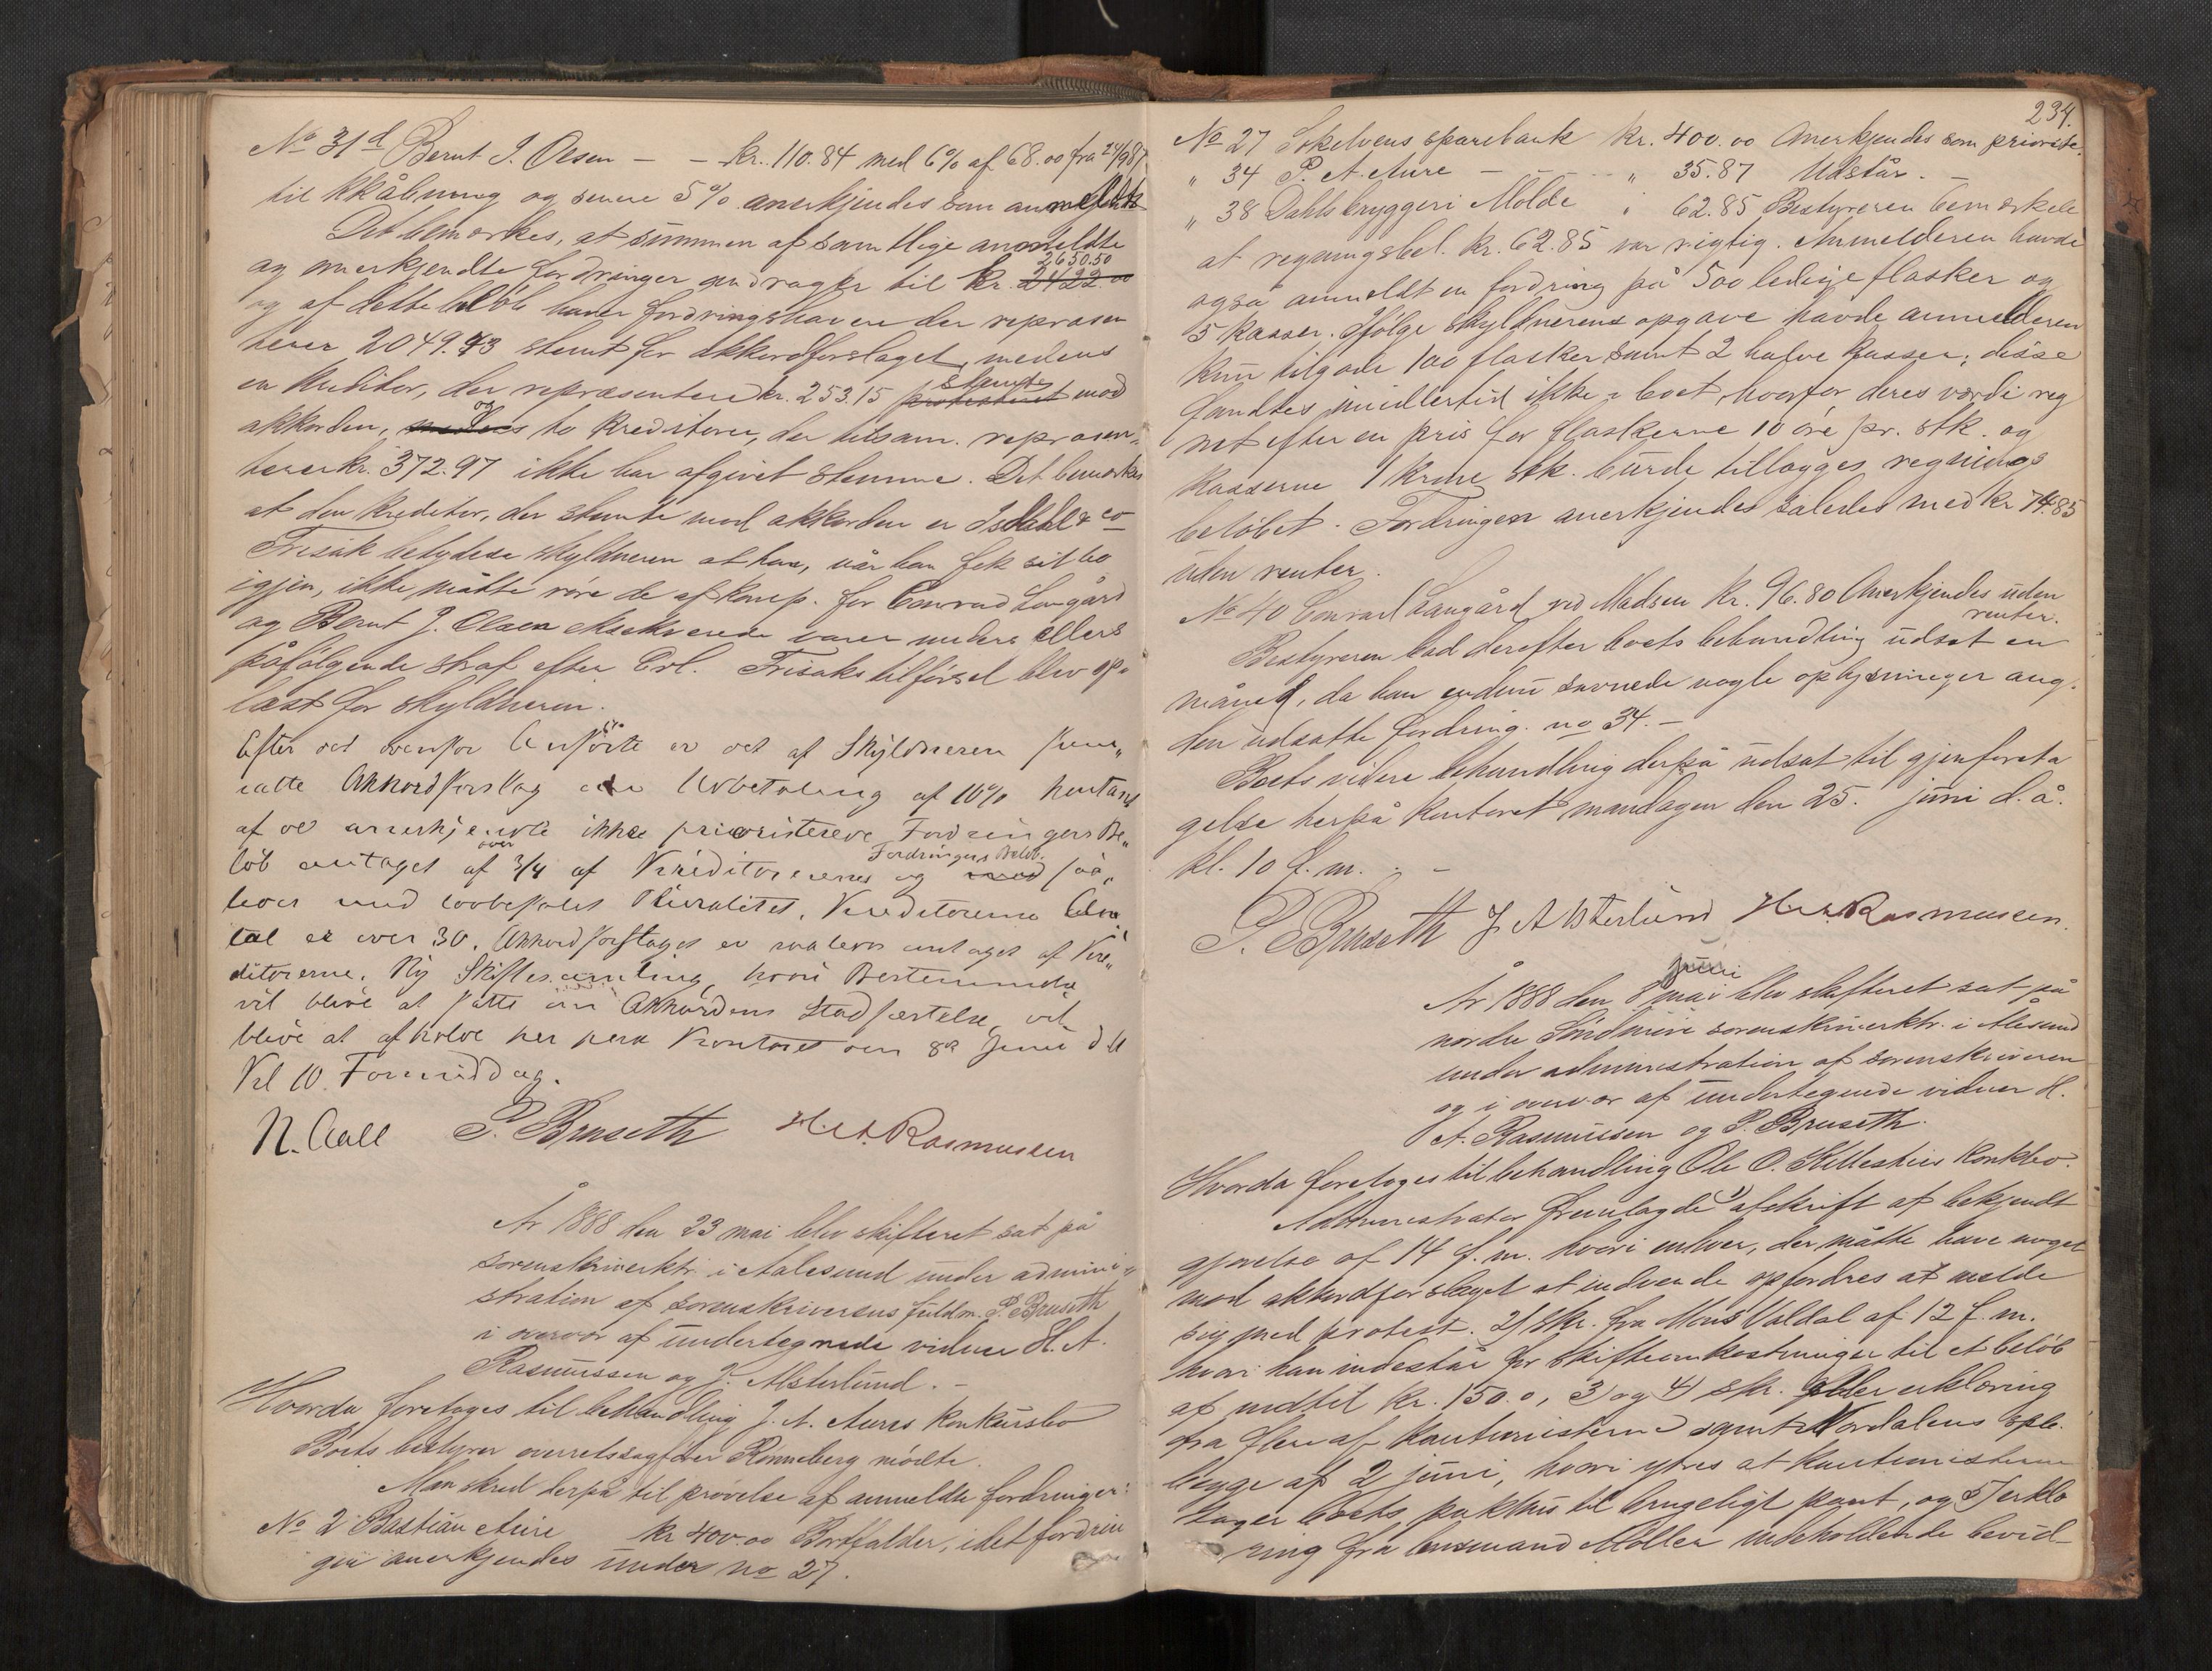 No 31d Bernt J. Olsen — — kr. 110.84 med 6% af 68.00 fra 24/9 87
til kkåbning og senere 5% anerkjendes som anmeldt
Det bemærkes, at summen af samtlige anmeldte
og anerkjendte fordringer andrager til kr. 2422.00 2650.50
og af dette beløb haver fordringshavere der repræsen
terer 2049.43 stemt for akkordforslaget, medens
en kreditor, der repræsenterer kr. 253.15 protesteret stemte mod
akkorden, medens og to kreditorer, der tilsam. repræsen-
terer kr. 372.97 ikke har afgivet stemme. Det bemærkes
at den kreditor, der stemte mod akkorden er Isdahl & co
Frisak betydede skyldneren at han, når han fek sit bo
igjen, ikke måtte røre de af komp. for Conrad Langård
og Bernt J. Olsen ekskverede varer under ellers
påfølgende straf efter Crl. Frisaks tilførsel blev op-
læst for skyldneren.
Efter det ovenfor Anførte er det af Skyldneren frem„
satte Akkordforslag om Udbetaling af 10% kontant
af de anerkjendte ikke prioriterede Fordringers Be„
løb antaget af over 3/4 af Kreditorernes og med Fordringers Beløb. saa„
ledes med lovbefalet Pluralitet. Kreditorerne
tal er over 30. Akkordforslaget er saaledes antaget af Kre„
ditorerne. Ny Skiftesamling, hvori Bestemmelse
vil blive at fatte om Akkordens Stadfæstelse, vil
blive at afholde her paa Kontoret den 8de Juni d A
Kl 10 Formiddag.
N. Aall P. Bruseth H. A. Rasmussen
År 1888 den 23 mai blev skifteret sat på
sorenskriverktr. i Aalesund under admini-
stration af sorenskriverens fuldm. P. Bruseth
i overvær af undertegnede vidner H. A.
Rasmussen og J. Alsterlund. —
Hvorda foretoges til behandling J. A. Aures konkursbo
Boets bestyrer overretssagfører Rønneberg mødte.
Man skred derpå til prøvelse af anmeldte fordringer:
No 2 Bastian Aure kr 400.00 Bortfalder, idet fordrin
gen anerkjendes under no 27.
234.
No 27 Søkelvens sparebank kr. 400.00 Anerkjendes som priorite.
„ 34 P. A. Aure — — — „ 35.87 Udstår. —
„ 38 Dahls bryggeri Molde „ 62.85 Bestyreren bemærkede
at regningsbel. kr. 62.85 var rigtig. Anmelderen havde
også anmeldt en fordring på 500 ledige flasker og
5 kasser. Ifølge skyldnerens opgave havde anmelderen
kun tilgode 100 flasker samt 2 halve kasser; disse
fandtes imidlertid ikke i boet, hvorfor deres værdi reg
net efter en pris for flaskerne 10 øre pr. stk. og
kasserne 1 krone stk. burde tillægges regnings
beløbet. Fordringen anerkjendes således med kr 74.85
uden renter.
No 40 Conrad Langård ved Madsen kr. 96.80 Anerkjendes uden
renter.
Bestyreren bad derefter boets behandling udsat en
måned, da han endnu savnede nogle oplysninger ang.
den udsatte fordring no 34. —
Boets videre behandling derpå udsat til gjenforeta
gelse herpå kontoret mandagen den 25. juni d. å.
kl. 10 f. m. . —
P. Bruseth J Alsterlund H. A. Rasmussen.
År 1888 den 8 mai juni blev skifteret sat på
nordre Søndmøre sorenskriverktr. i Alesund
under administration af sorenskriveren
og i overvær af undertegnede vidner H.
A. Rasmussen og P. Bruseth.
Hvorda foretoges til behandling Ole O. Hellesties konkbo.
Administrator fremlagde 1) afskrift af bekjendt
gjørelse af 14 f. m. hvori enhver, der måtte have noget
mod akkordforslaget at indvende opfordres at melde
sig med protest. 2) skr. fra Mons Valdal af 12 f. m.
hvori han indestår for skifteomkostninger til et beløb
af indtil kr. 150.0, 3) og 4) skr. eller erklæring
fra flere af kautionisterne samt Nordalens spb.
begge af 2 juni, hvori ytres at kautionisterne
tager boets pakhus til brugeligt pant, og 5) erklæ
ring fra lensmand Møller indeholdende bevid-